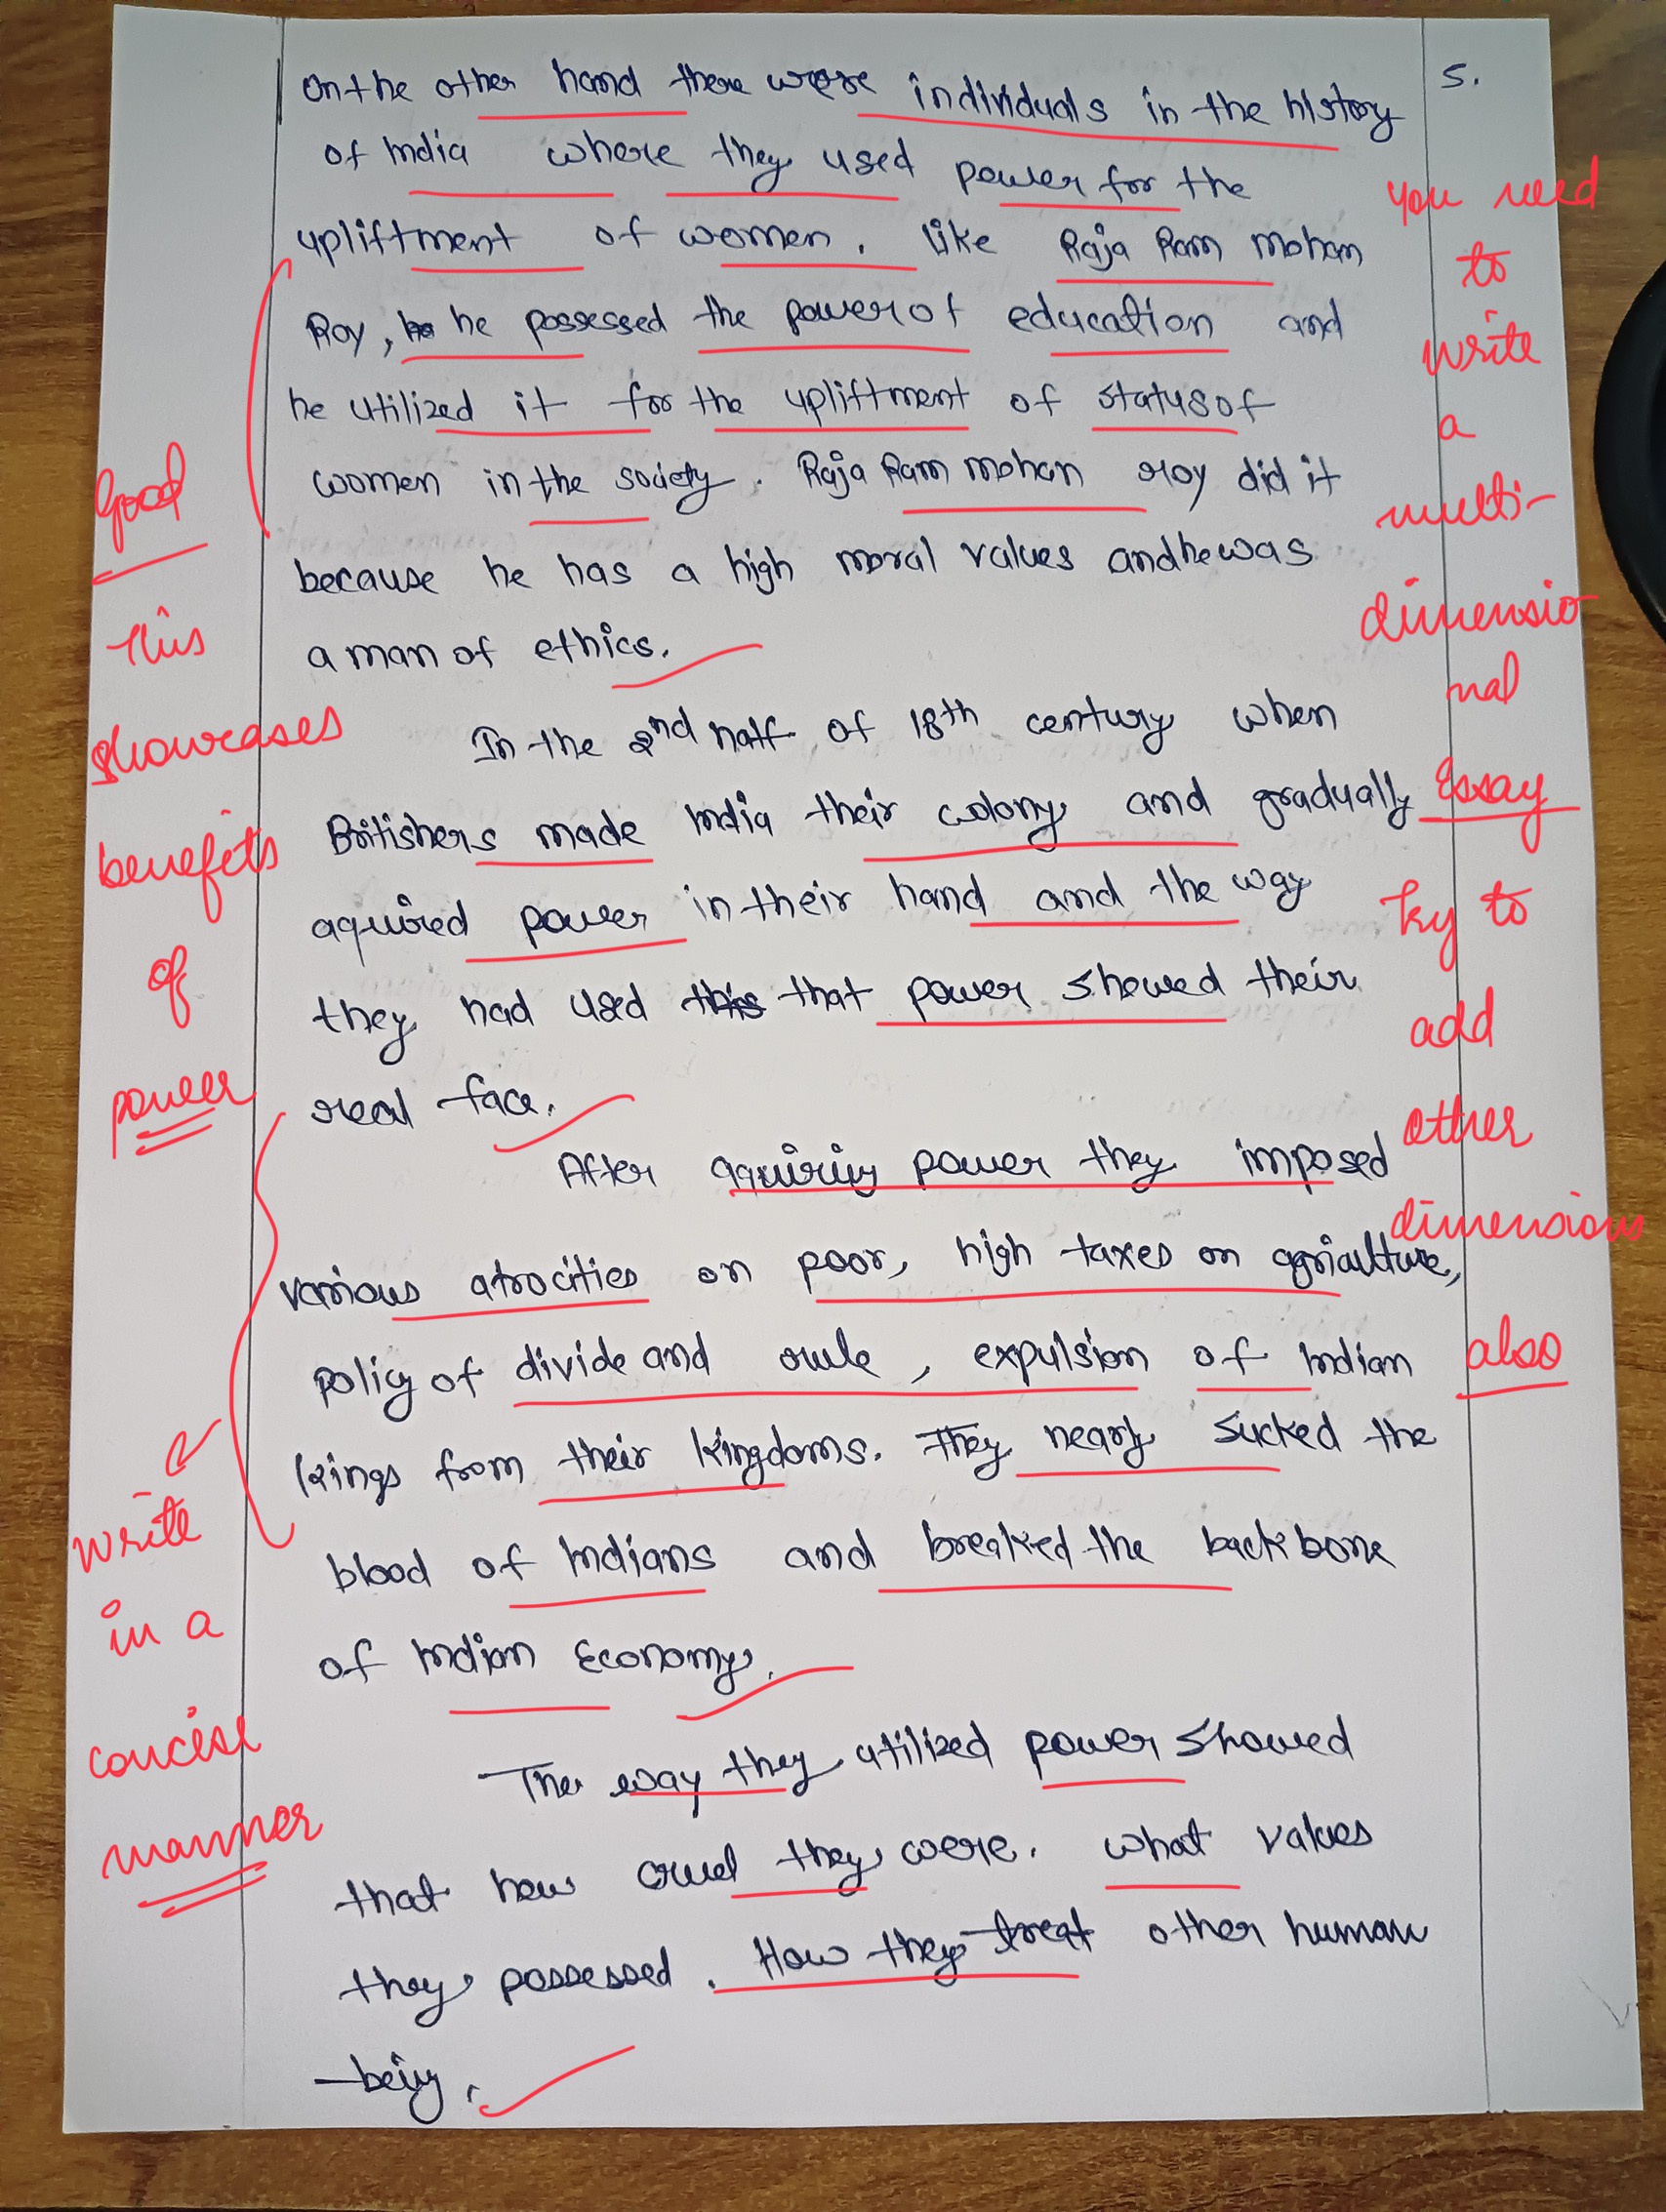 5.
On the other hand there were individuals in the history
of India where they used power for the
upliftment of women. like Raja Ram Mohan
Roy, he possessed the power of education and
he utilized it for the upliftment of status of
women in the society. Raja Ram Mohan Roy did it
because he has a high moral values and he was
a man of ethics.
In the 2nd half of 18th century when
Britishers made India their colony and gradually
aquired power in their hand and the way
they had used this that power showed their
real face.
After aquiring power they imposed
various atrocities on poor, high taxes on agriculture,
policy of divide and rule, expulsion of Indian
kings from their kingdoms. They nearly sucked the
blood of Indians and breaked the backbone
of Indian Economy.
The way they utilized power showed
that how cruel they were. what values
they possessed. How they treat other human
being.
Good
This
showcases
benefits
of
power
write
in a
concise
manner
you need
to
write
a
multi-
dimensio
nal
Essay
Try to
add
other
dimensions
also